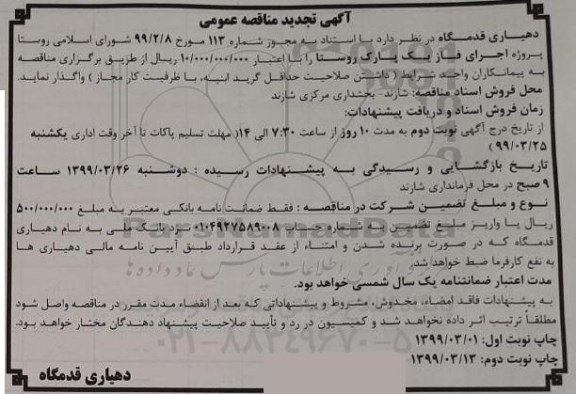 آگهی تجدید مناقصه عمومی
دهیاری قدمگاه در نظر دارد با استناد به مجوز شماره ۱۱۳ مورخ ۹۹/۲/۸ شورای اسلامی روستا
پروژه اجرای فاز یک پارک روستا را با اعتبار ۱۰/۰۰۰/۰۰۰/۰۰۰ ریال از طریق برگزاری مناقصه
به پیمانکاران واجد شرایط ( داشتن صلاحیت حداقل گرید ابنیه، با ظرفیت کار مجاز ) واگذار نماید.
محل فروش اسناد مناقصه: شازند- بخشداری مرکزی شازند
زمان فروش اسناد و دریافت پیشنهادات:
از تاریخ درج آگهی نوبت دوم به مدت ۱۰ روز از ساعت ۷:۳۰ الی ۱۴( مهلت تسلیم پاکات تا آخر وقت اداری یکشنبه
۹۹/۰۳/۲۵ )
تاریخ بازگشایی و رسیدگی به پیشنهادات رسیده : دوشنبه ۱۳۹۹/۰۳/۲۶ ساعت
۹ صبح در محل فرمانداری شازند
نوع و مبلغ تضمین شرکت در مناقصه : فقط ضمانت نامه بانکی معتبر به مبلغ ۵۰۰/۰۰۰/۰۰۰
ریال یا واریز مبلغ تضمین به شماره حساب ۰۱۰۴۹۲۷۵۸۹۰۰۸ نزد بانک ملی به نام دهیاری
قدمگاه که در صورت برنده شدن و امتناء از عقد قرارداد طبق آیین نامه مالی دهیاری ها
به نفع کارفرما ضبط خواهد شد.
مدت اعتبار ضمانتنامه یک سال شمسی خواهد بود.
به پیشنهادات فاقد امضاء، مخدوش، مشروط و پیشنهاداتی که بعد از انقضاء مدت مقرر در مناقصه واصل شود
مطلقاً ترتیب اثر داده نخواهد شد و کمیسیون در رد و تأیید صلاحیت پیشنهاد دهندگان مختار خواهد بود.
چاپ نوبت اول: ۱۳۹۹/۰۳/۰۱
چاپ نوبت دوم: ۱۳۹۹/۰۳/۱۳
دهیاری قدمگاه
۰۲۱-۸۸۳۴۹۶۷۰-۵